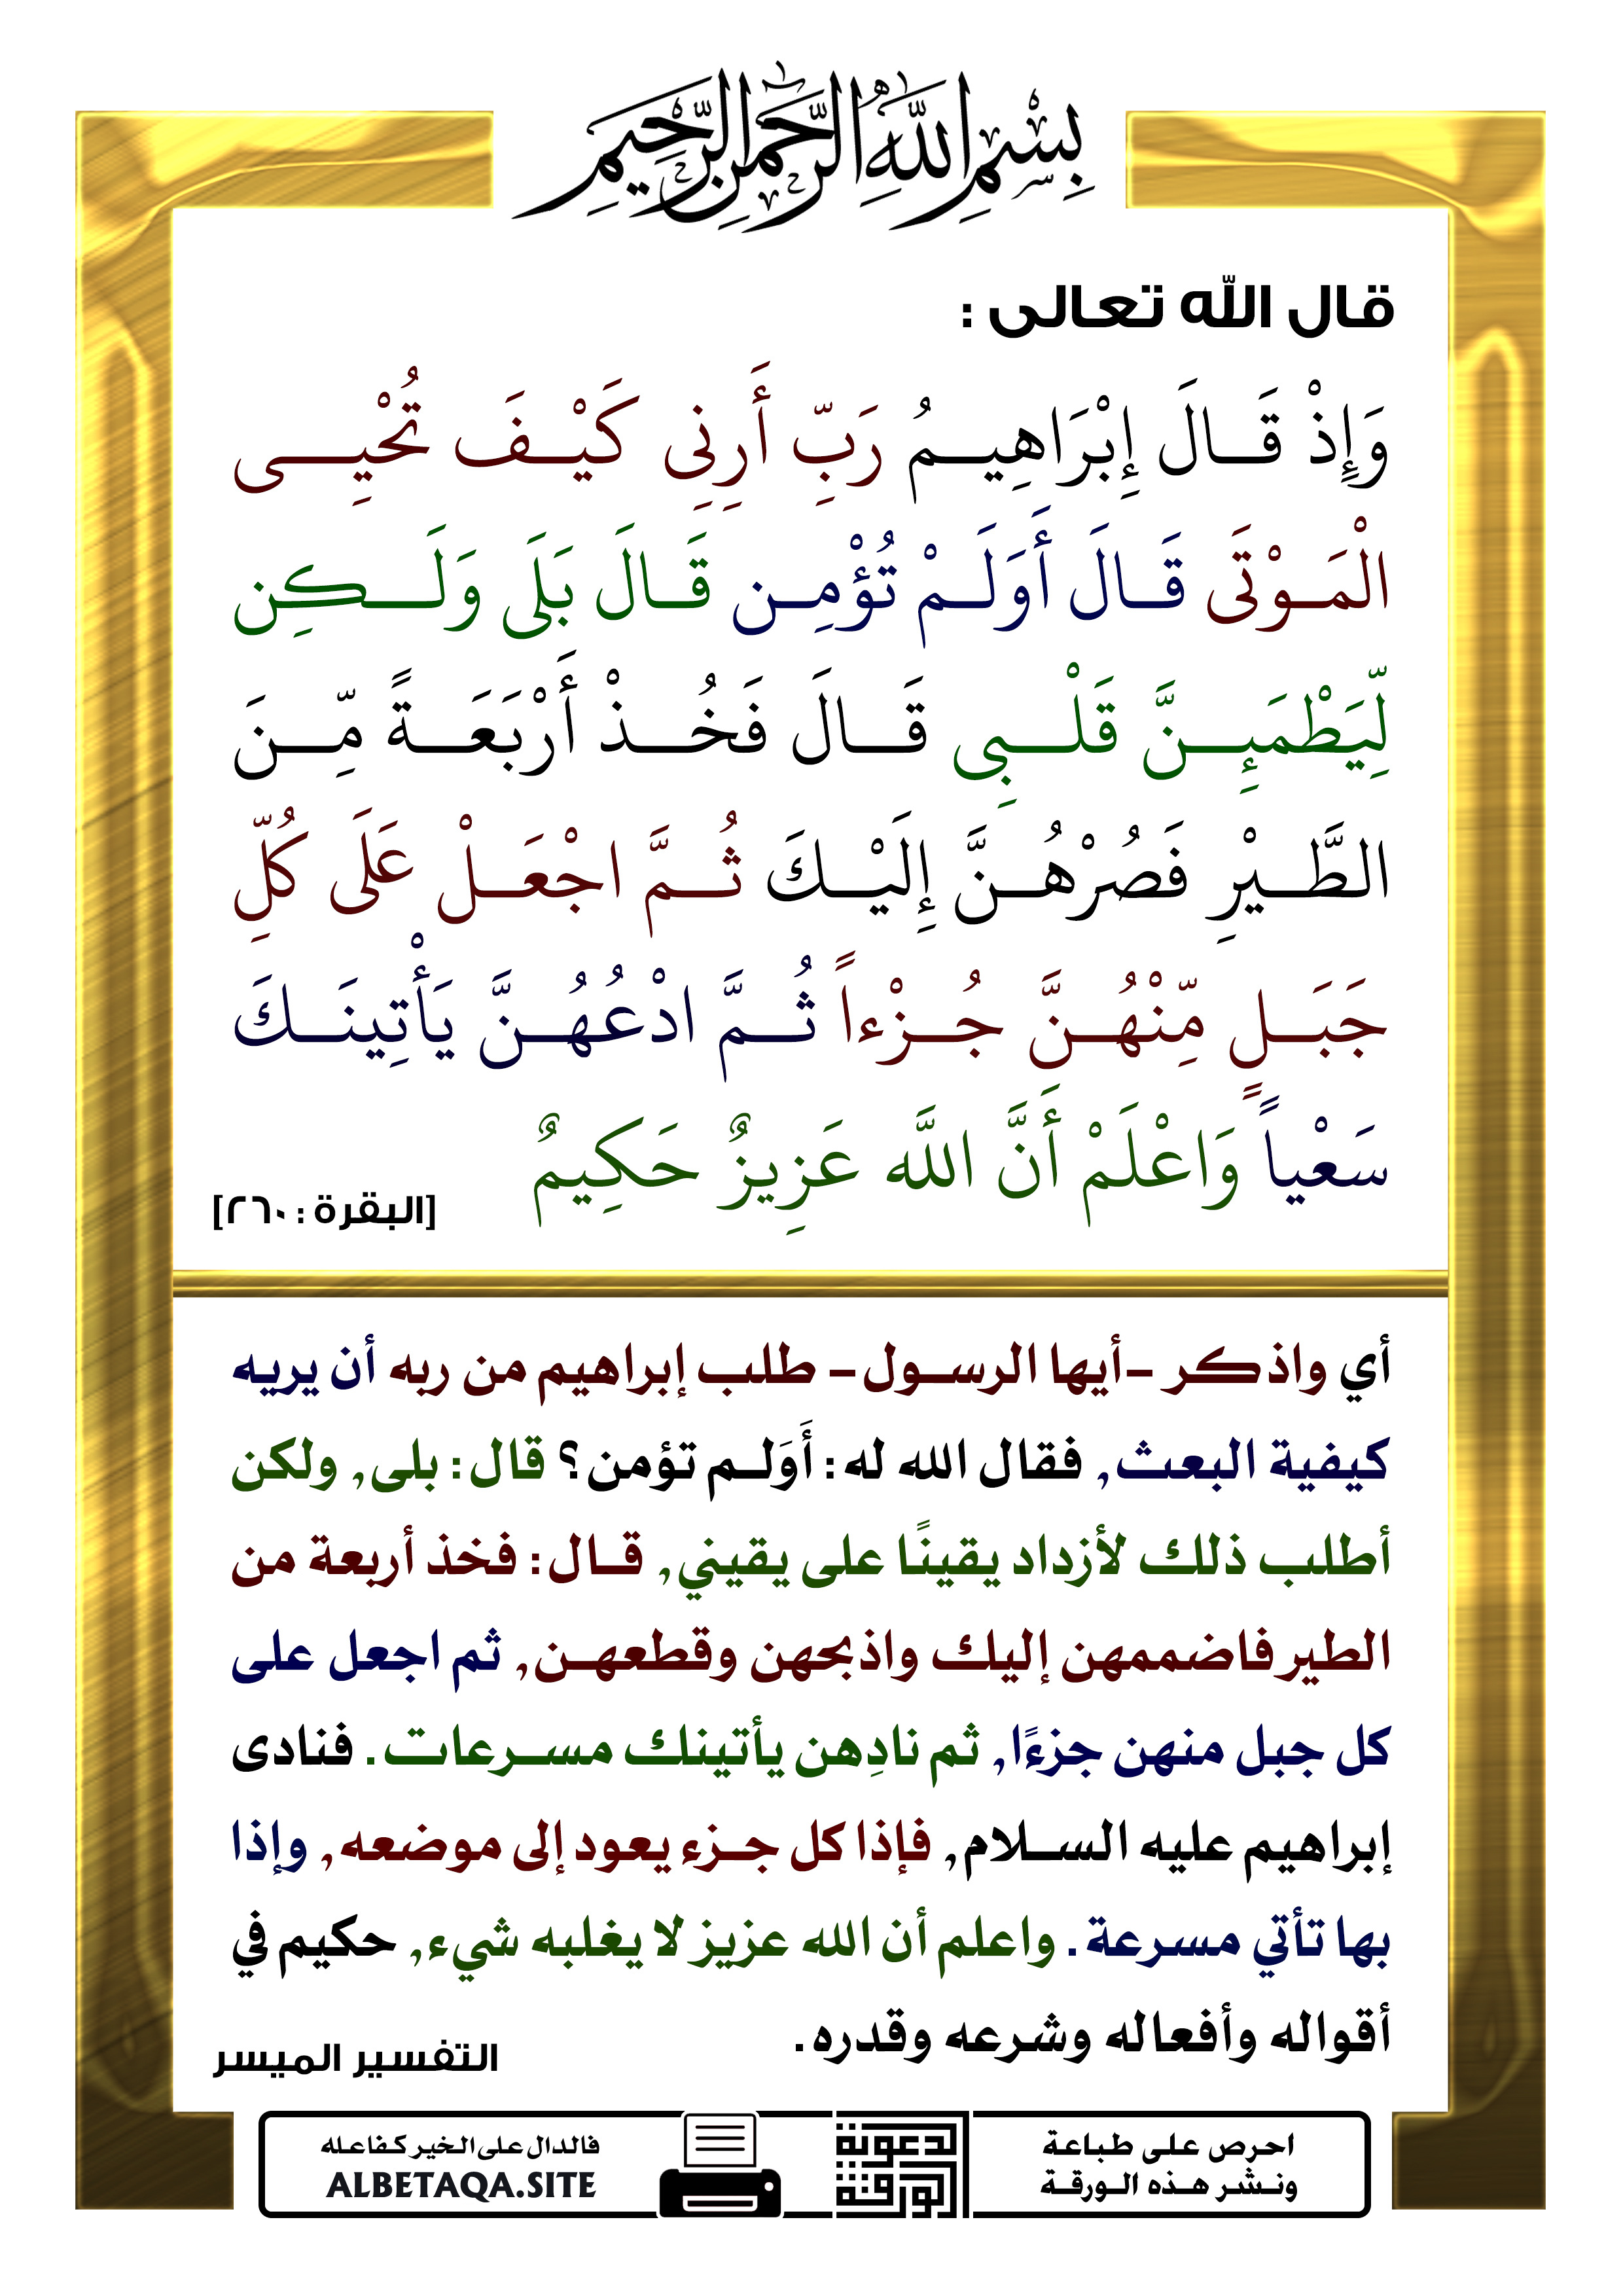 بِسْمِ اللَّهِ الرَّحْمَٰنِ الرَّحِيمِ
قال الله تعالى :
وَإِذْ قَالَ إِبْرَاهِيمُ رَبِّ أَرِنِي كَيْفَ تُحْيِي
الْمَوْتَى قَالَ أَوَلَمْ تُؤْمِن قَالَ بَلَى وَلَكِن
لِّيَطْمَئِنَّ قَلْبِي قَالَ فَخُذْ أَرْبَعَةً مِّنَ
الطَّيْرِ فَصُرْهُنَّ إِلَيْكَ ثُمَّ اجْعَلْ عَلَى كُلِّ
جَبَلٍ مِّنْهُنَّ جُزْءاً ثُمَّ ادْعُهُنَّ يَأْتِينَكَ
سَعْياً وَاعْلَمْ أَنَّ اللَّه عَزِيزٌ حَكِيمٌ
[البقرة : ٢٦٠]
أي واذكر -أيها الرسول- طلب إبراهيم من ربه أن يريه
كيفية البعث, فقال الله له: أَوَلم تؤمن؟ قال: بلى, ولكن
أطلب ذلك لأزداد يقينًا على يقيني, قال: فخذ أربعة من
الطير فاضممهن إليك واذبحهن وقطعهن, ثم اجعل على
كل جبل منهن جزءًا, ثم نادِهن يأتينك مسرعات. فنادى
إبراهيم عليه السلام, فإذا كل جزء يعود إلى موضعه, وإذا
بها تأتي مسرعة. واعلم أن الله عزيز لا يغلبه شيء, حكيم في
أقواله وأفعاله وشرعه وقدره.
التفسير الميسر
احرص على طباعة
ونشر هذه الورقة
لدعوية
الورقة
فالدال على الخير كفاعله
ALBETAQA.SITE